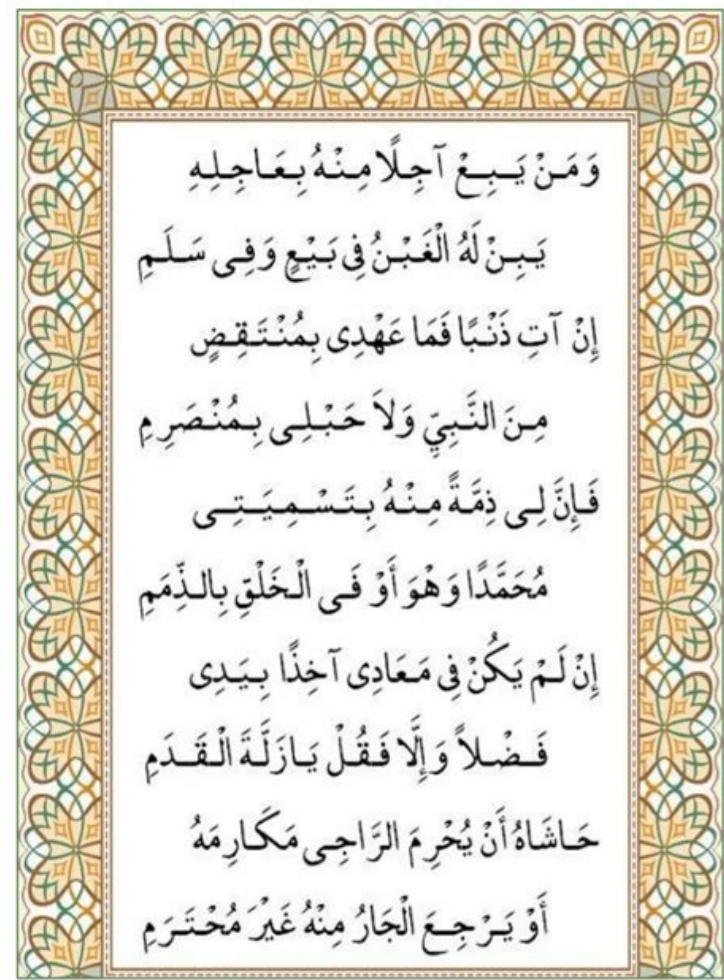 وَمَنْ يَبِعْ آجِلًا مِنْهُ بِعَاجِلِهِ
يَبِنْ لَهُ الْغَبْنُ فِى بَيْعٍ وَفِى سَلَمِ
إِنْ آتِ ذَنْبًا فَمَا عَهْدِى بِمُنْتَقِضٍ
مِنَ النَّبِيِّ وَلاَ حَبْلِى بِمُنْصَرِمِ
فَإِنَّ لِى ذِمَّةً مِنْهُ بِتَسْمِيَتِى
مُحَمَّدًا وَهْوَ أَوْفَى الْخَلْقِ بِالذِّمَمِ
إِنْ لَمْ يَكُنْ فِى مَعَادِى آخِذًا بِيَدِى
فَضْلاً وَإِلَّا فَقُلْ يَازَلَّةَ الْقَدَمِ
حَاشَاهُ أَنْ يُحْرِمَ الرَّاجِى مَكَارِمَهُ
أَوْ يَرْجِعَ الْجَارُ مِنْهُ غَيْرَ مُحْتَرَمِ